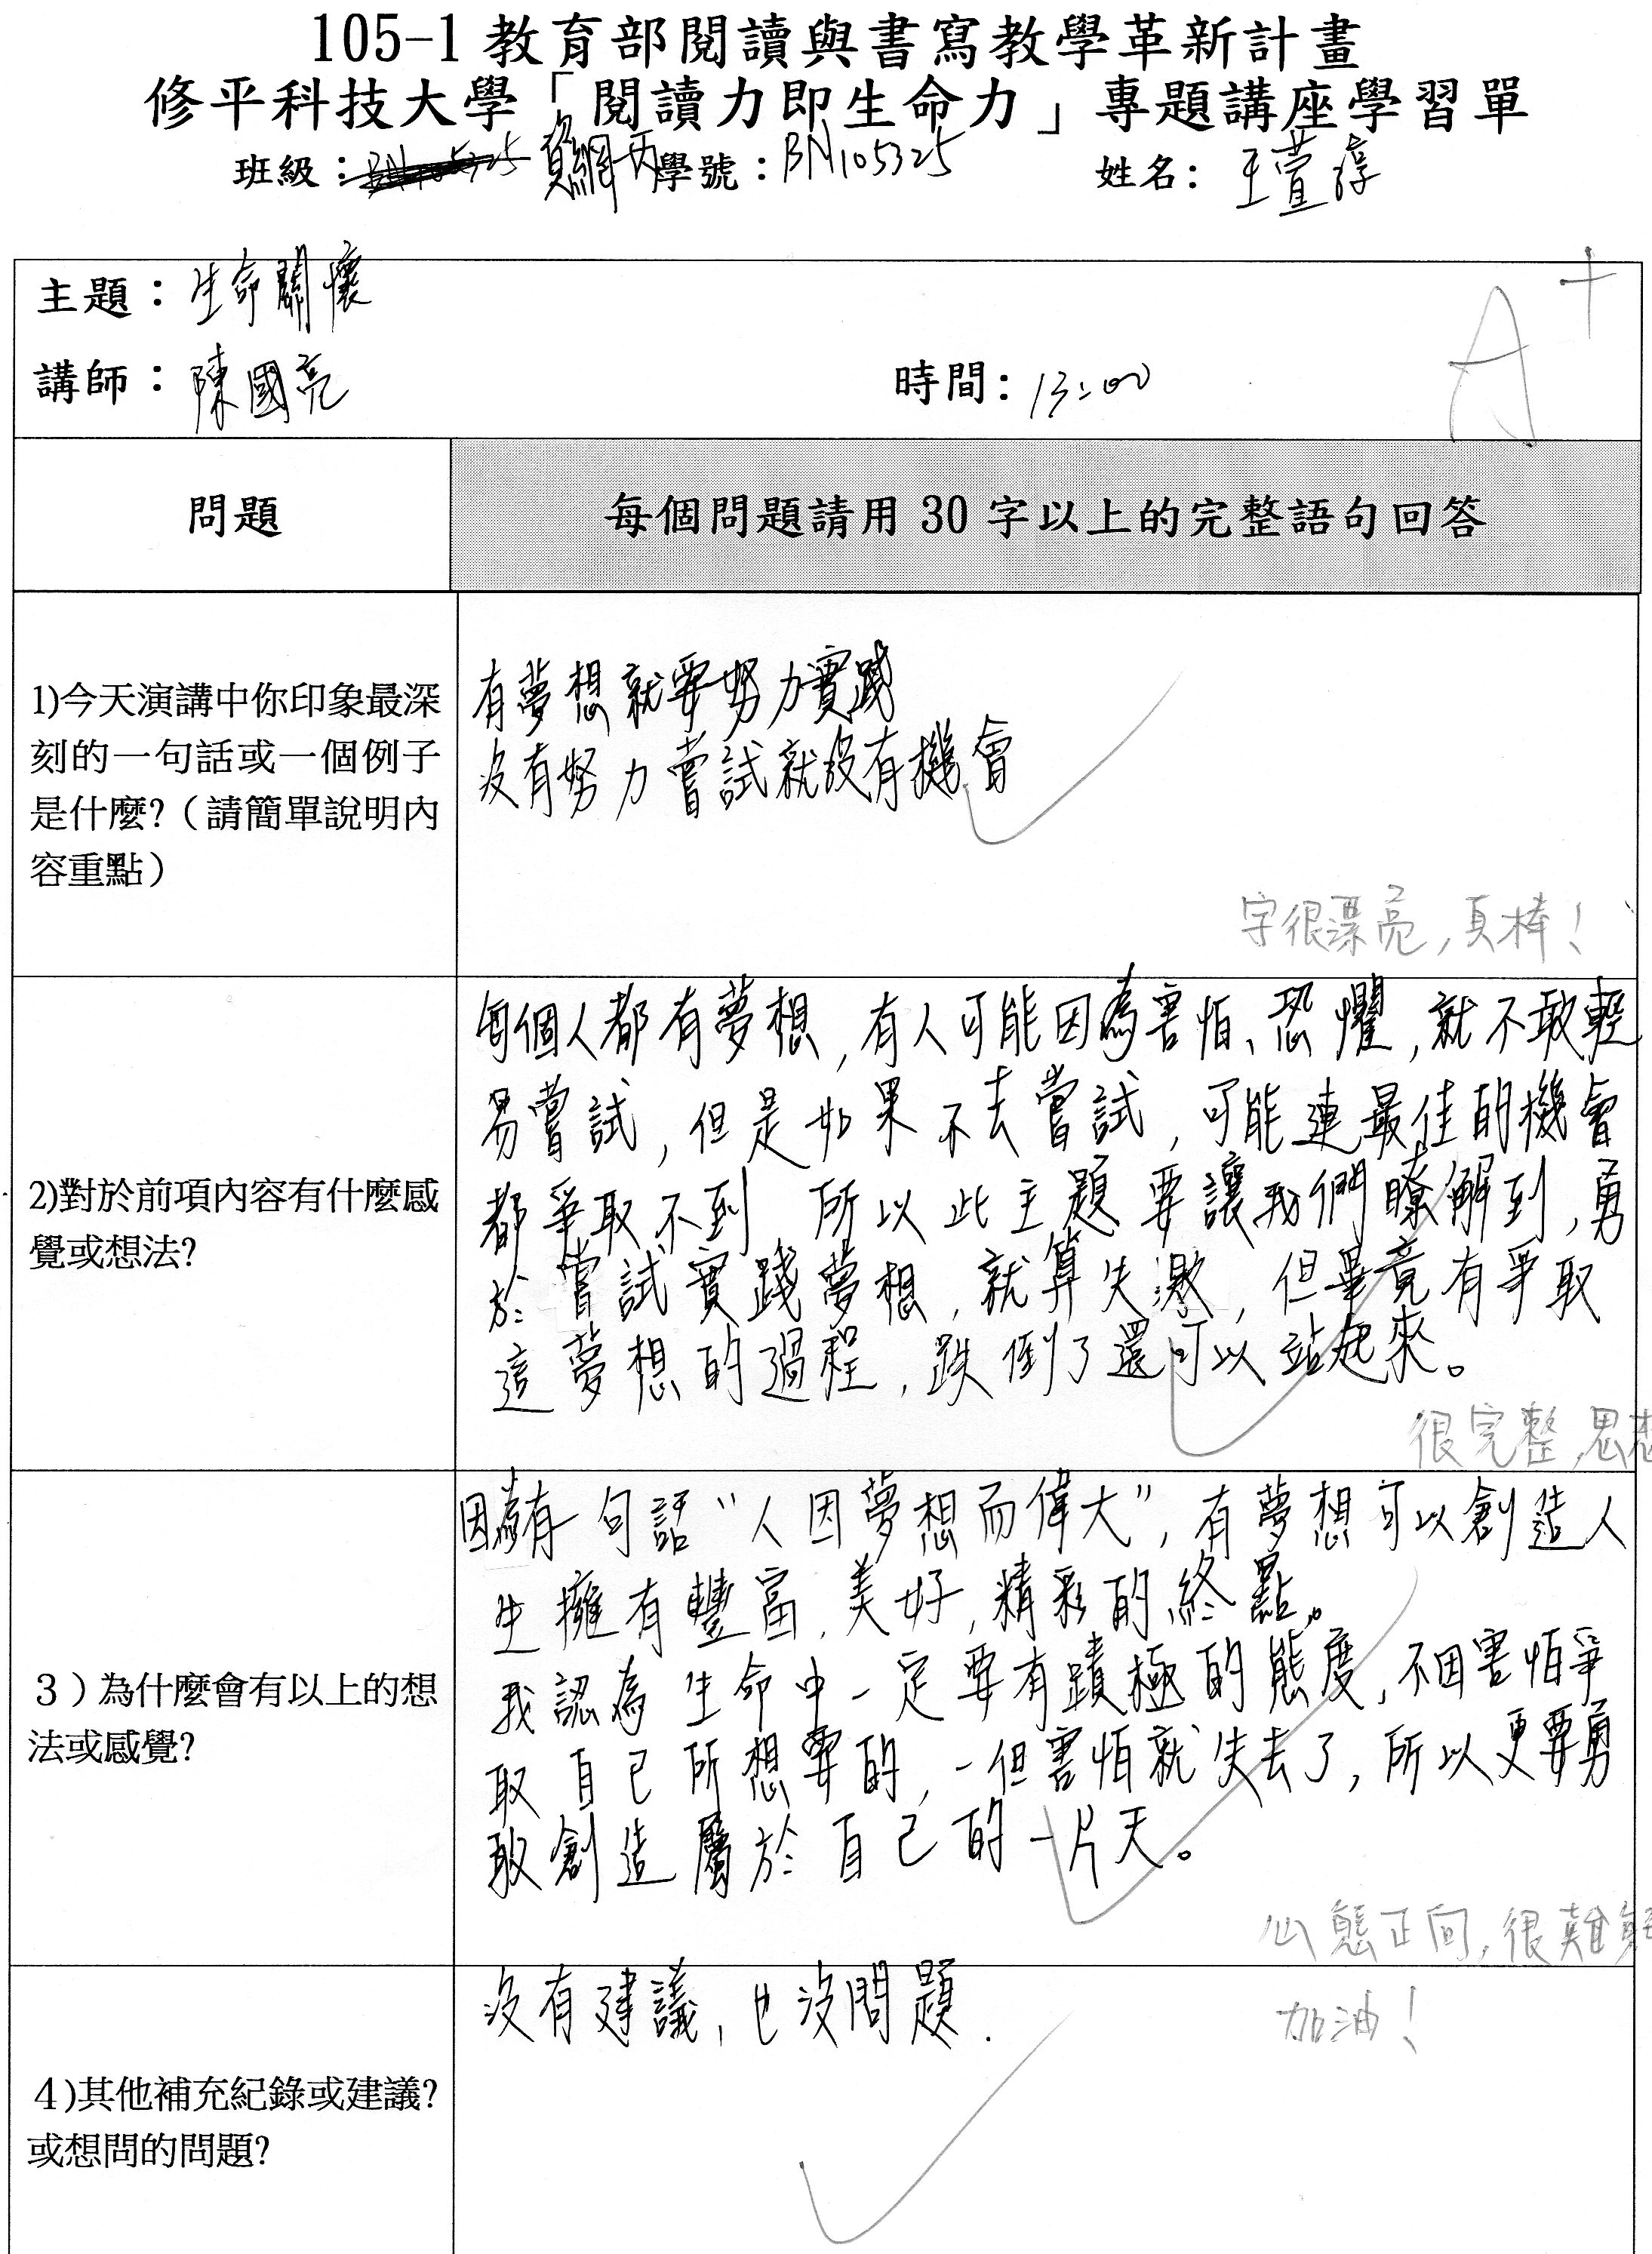 105-1 教育部閱讀與書寫教學革新計畫
修平科技大學「閱讀力即生命力」專題講座學習單
班級：資網丙 學號：BN105325 姓名：王萱淳
主題：生命關懷
A+
講師：陳國亮 時間：13:00
問題 每個問題請用 30 字以上的完整語句回答
1)今天演講中你印象最深
刻的一句話或一個例子
是什麼?（請簡單說明內
容重點）
有夢想就要努力實踐
沒有努力嘗試就沒有機會
字很漂亮,真棒!
2)對於前項內容有什麼感
覺或想法?
每個人都有夢想,有人可能因為害怕、恐懼,就不敢輕
易嘗試,但是如果不去嘗試,可能連最佳的機會
都爭取不到 所以此主題要讓我們瞭解到,勇
於嘗試實踐夢想,就算失敗,但畢竟有爭取
這夢想的過程,跌倒了還可以站起來。
很完整,思想
3）為什麼會有以上的想
法或感覺?
因為有一句話"人因夢想而偉大",有夢想可以創造人
生擁有豐富,美好,精彩的終點。
我認為生命中一定要有積極的態度,不因害怕爭
取自己所想要的,一但害怕就失去了,所以更要勇
敢創造屬於自己的一片天。
心態正向,很難
加油!
4)其他補充紀錄或建議?
或想問的問題?
沒有建議,也沒問題.